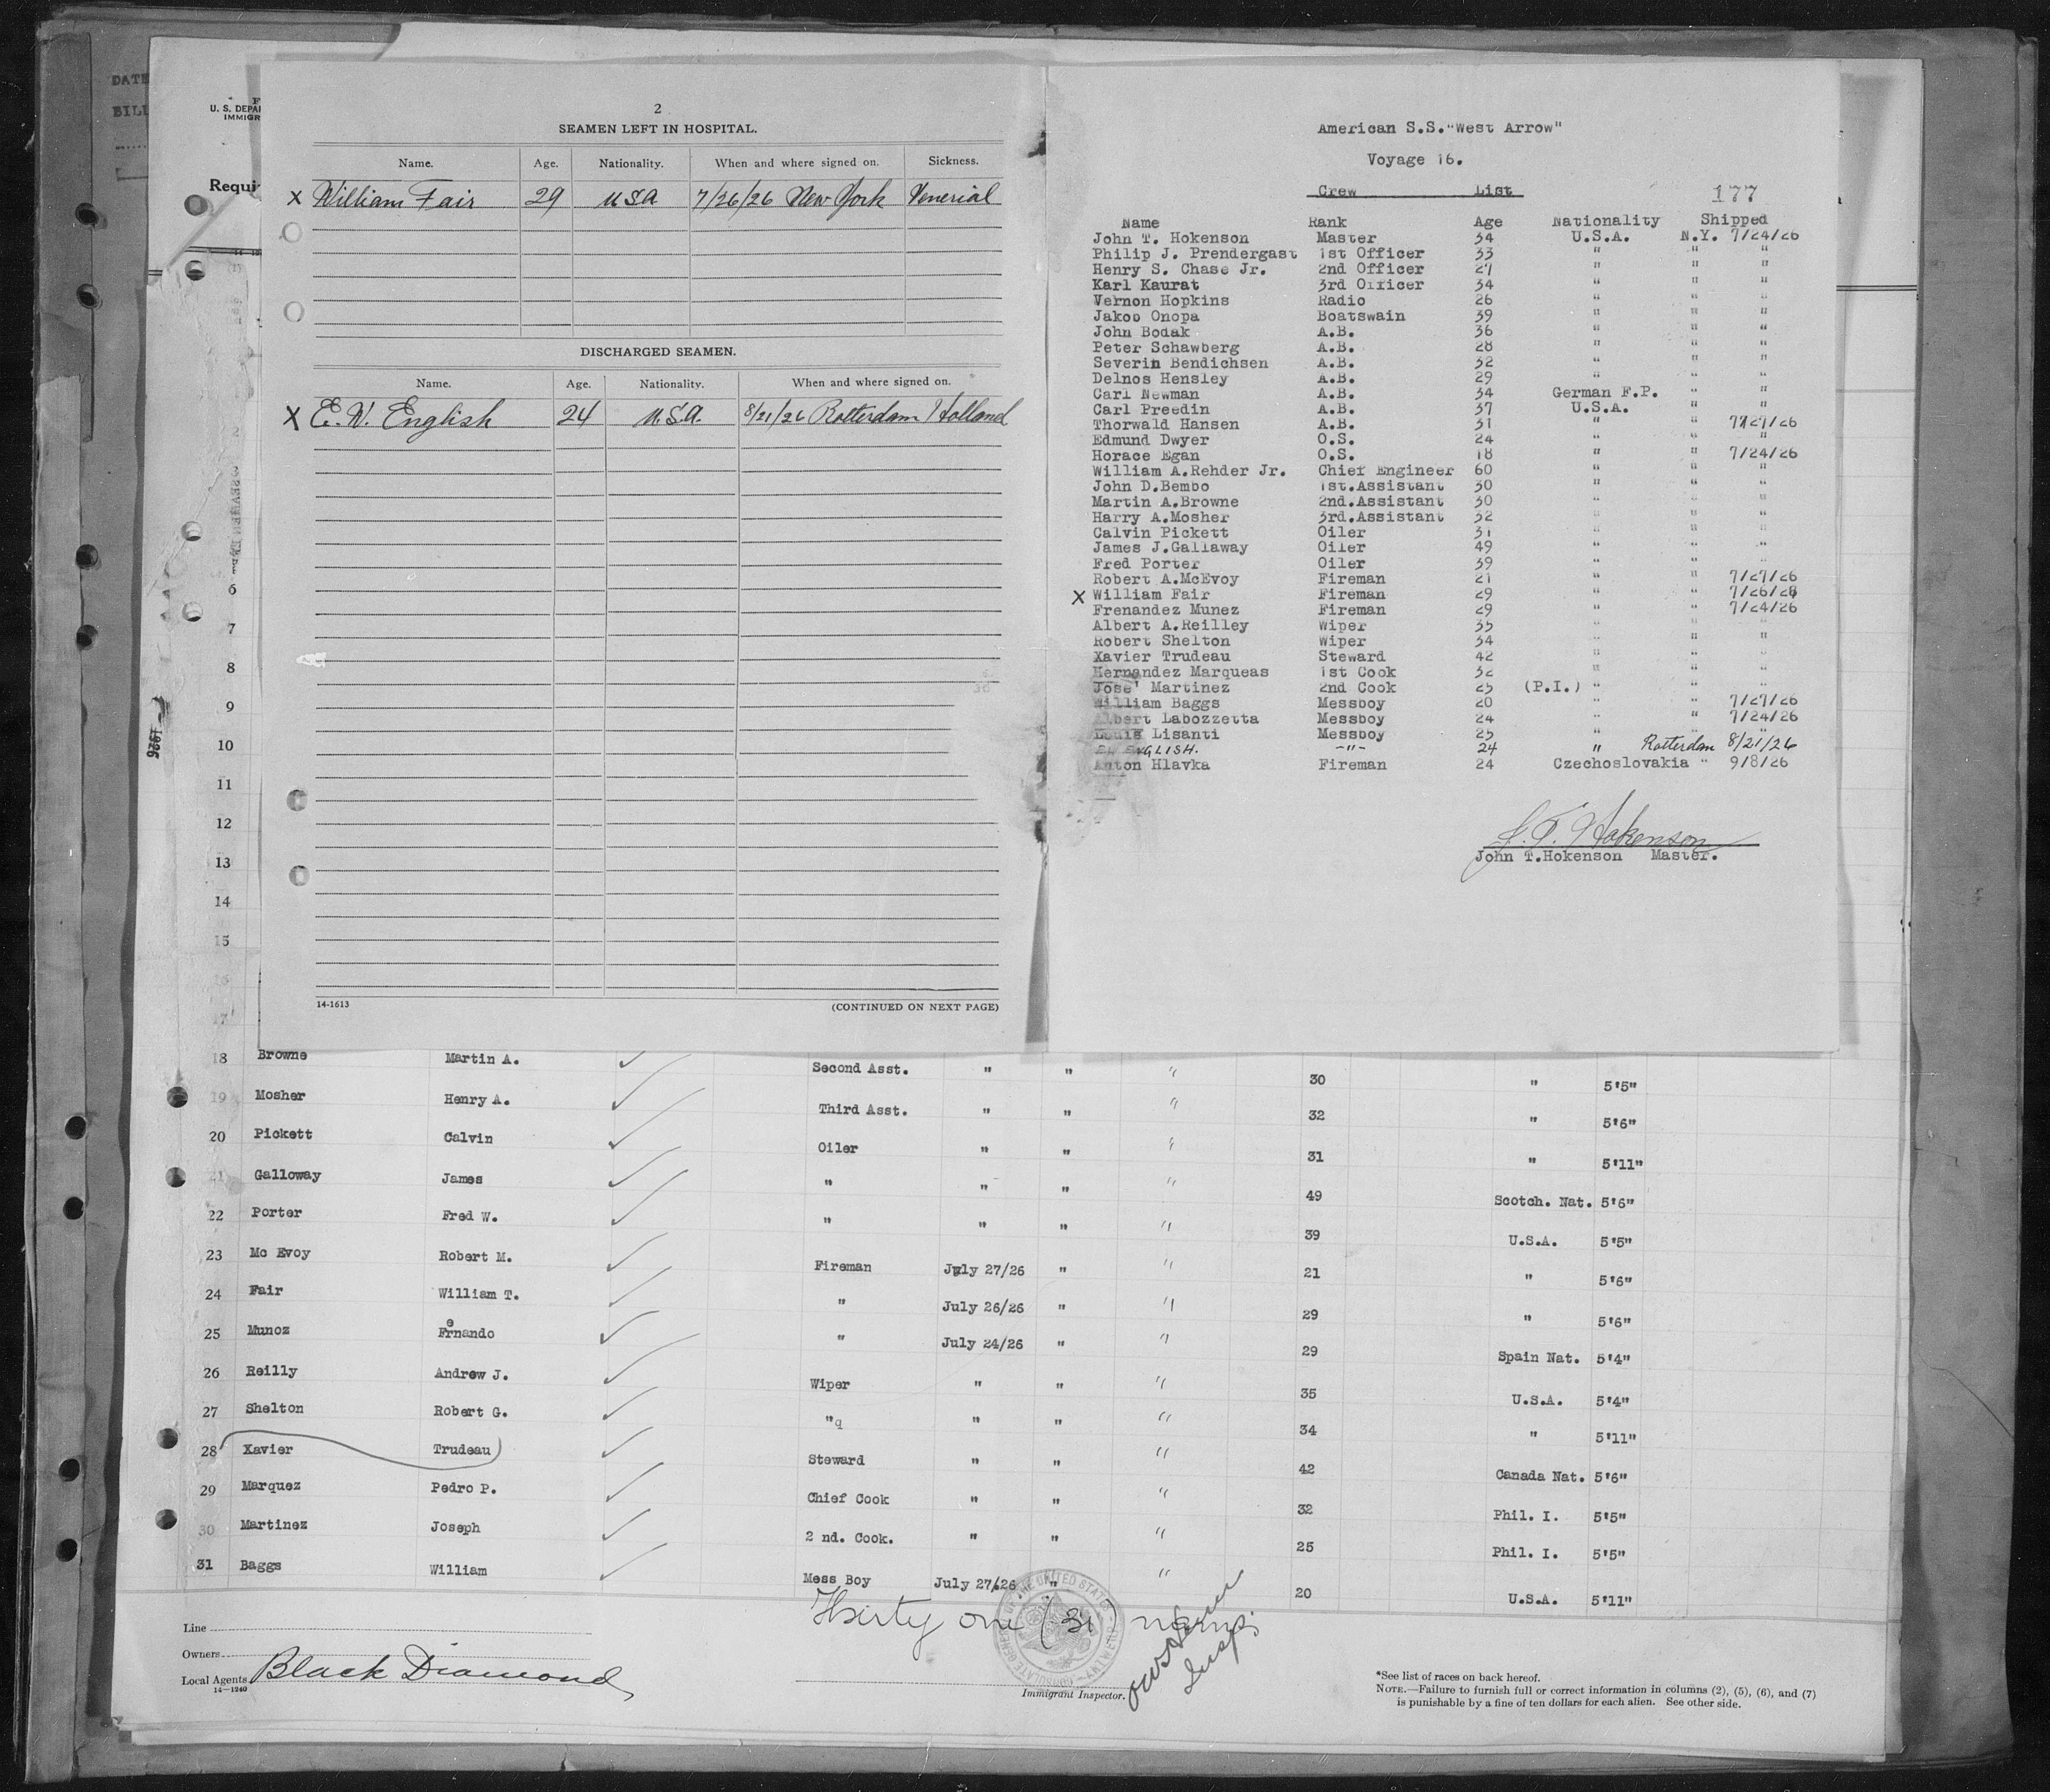 DATE
BILL
U. S. DEPAR
IMMIGR
Requi
2
SEAMEN LEFT IN HOSPITAL.
Name. Age. Nationality. When and where signed on. Sickness.
X William Fair 29 USA 7/26/26 New York Venerial
DISCHARGED SEAMEN.
Name. Age. Nationality. When and where signed on.
X E. W. English 24 U.S.A. 8/21/26 Rotterdam Holland
14-1613 (CONTINUED ON NEXT PAGE)
American S.S."West Arrow"
Voyage 16.
Crew List
177
Name Rank Age Nationality Shipped
John T. Hokenson Master 34 U.S.A. N.Y. 7/24/26
Philip J. Prendergast 1st Officer 33 " " "
Henry S. Chase Jr. 2nd Officer 27 " " "
Karl Kaurat 3rd Officer 34 " " "
Vernon Hopkins Radio 26 " " "
Jakob Onopa Boatswain 39 " " "
John Bodak A.B. 36 " " "
Peter Schawberg A.B. 28 " " "
Severin Bendichsen A.B. 32 " " "
Delnos Hensley A.B. 29 " " "
Carl Newman A.B. 34 German F.P. " "
Carl Preedin A.B. 37 U.S.A. " "
Thorwald Hansen A.B. 31 " " 7/27/26
Edmund Dwyer O.S. 24 " " "
Horace Egan O.S. 18 " " 7/24/26
William A.Rehder Jr. Chief Engineer 60 " " "
John D.Bembo 1st.Assistant 30 " " "
Martin A.Browne 2nd.Assistant 30 " " "
Harry A.Mosher 3rd.Assistant 32 " " "
Calvin Pickett Oiler 31 " " "
James J.Gallaway Oiler 49 " " "
Fred Porter Oiler 39 " " "
Robert A.McEvoy Fireman 21 " " 7/27/26
X William Fair Fireman 29 " " 7/26/26
Frenandez Munez Fireman 29 " " 7/24/26
Albert A.Reilley Wiper 35 " " "
Robert Shelton Wiper 34 " " "
Xavier Trudeau Steward 42 " " "
Hernandez Marqueas 1st Cook 32 " " "
Jose' Martinez 2nd Cook 25 (P.I.) " " "
William Baggs Messboy 20 " " 7/27/26
Albert Labozzetta Messboy 24 " " 7/24/26
Louis Lisanti Messboy 25 " " "
E.W ENGLISH. -"- 24 " Rotterdam 8/21/26
Anton Hlavka Fireman 24 Czechoslovakia " 9/8/26
J. T. Hokenson
John T.Hokenson Master.
1926
6
7
8
9
10
11
12
13
14
15
16
17
18 Browne Martin A. Second Asst. " " " 30 " 5'5"
19 Mosher Henry A. Third Asst. " " " 32 " 5'6"
20 Pickett Calvin Oiler " " " 31 " 5'11"
21 Galloway James " " " " 49 Scotch. Nat. 5'6"
22 Porter Fred W. " " " " 39 U.S.A. 5'5"
23 Mc Evoy Robert M. Fireman July 27/26 " " 21 " 5'6"
24 Fair William T. " July 26/26 " " 29 " 5'6"
25 Munoz Fernando " July 24/26 " " 29 Spain Nat. 5'4"
26 Reilly Andrew J. Wiper " " " 35 U.S.A. 5'4"
27 Shelton Robert G. "q " " " 34 " 5'11"
28 Xavier Trudeau Steward " " " 42 Canada Nat. 5'6"
29 Marquez Pedro P. Chief Cook " " " 32 Phil. I. 5'5"
30 Martinez Joseph 2 nd. Cook. " " " 25 Phil. I. 5'5"
31 Baggs William Mess Boy July 27/26 " " 20 U.S.A. 5'11"
Thirty one (31)
Line
Owners
Local Agents Black Diamond
14—1240
Immigrant Inspector.
Insp.
*See list of races on back hereof.
NOTE.—Failure to furnish full or correct information in columns (2), (5), (6), and (7)
is punishable by a fine of ten dollars for each alien. See other side.